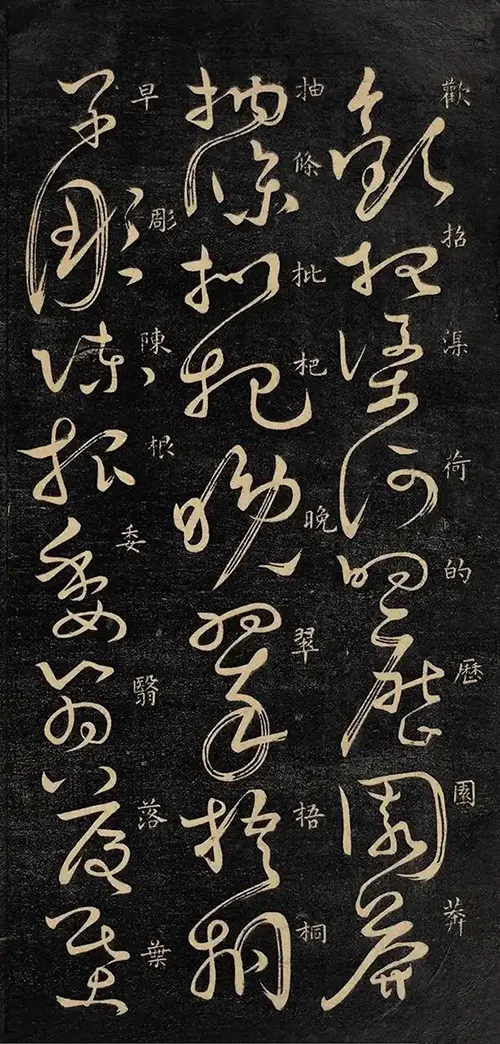 歡招渠荷的歷園莽
抽條枇杷晚翠梧桐
早彫陳根委翳落葉